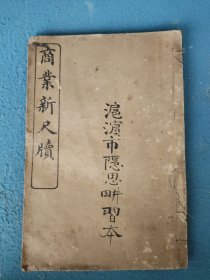 商業新尺牘
滬濱市隱思畊習本